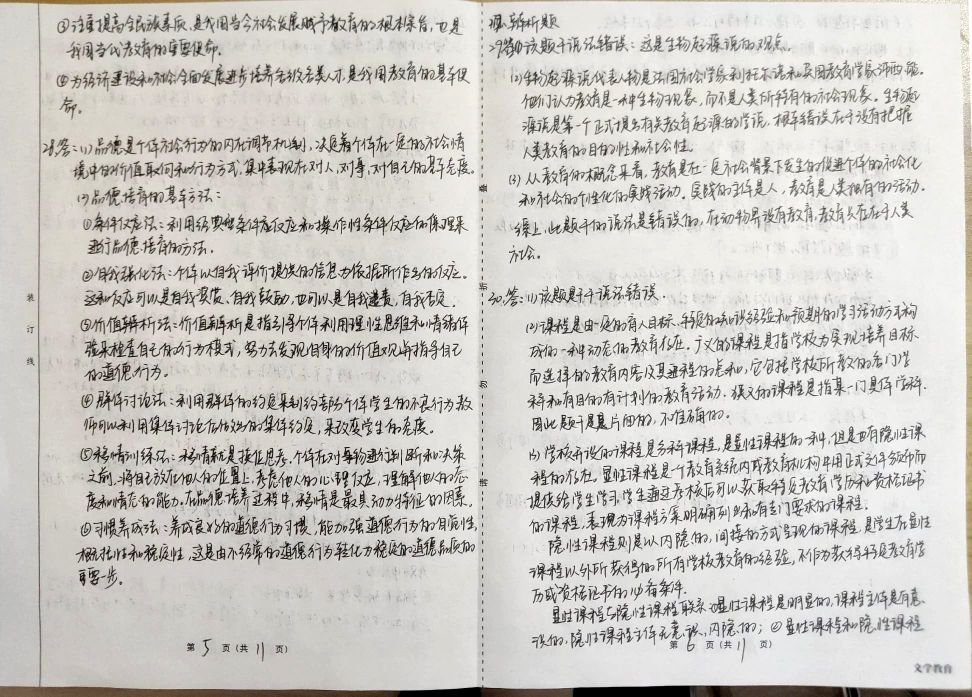 ③注重提高全民族素质,是我国当今社会发展赋予教育的根本宗旨,也是
我国当代教育的重要使命。
④为经济建设和社会全面发展进步培养各级各类人才,是我国教育的基本使
命。
28.答:(1)品德是个体社会行为的内在调节机制,决定着个体在一定的社会情
境中的价值取向和行为方式,集中表现在对人、对事、对自己的基本态度。
(2)品德培育的基本方法:
①条件反应法:利用经典型条件反应和操作性条件反应的原理来
进行品德培育的方法。
②自我强化法:个体以自我评价提供的信息为依据所作出的反应。
这种反应可以是自我奖赏、自我鼓励,也可以是自我谴责,自我否定。
③价值辨析法:价值辨析是指引导个体利用理性思维和情绪体
验来检查自己的行为模式,努力去发现自身的价值观并指导自己
的道德行为。
④群体讨论法:利用群体的约定来制约部分个体学生的不良行为,教
师可以利用集体讨论后的集体约定,来改变学生的态度。
⑤移情训练法:移情就是换位思考,个体在对事物进行判断和决策
之前,将自己放在他人的位置上,考虑他人的心理反应,理解他人的态
度和情感的能力。在品德培养过程中,移情是最具动力特征的因素。
⑥习惯养成法:养成良好的道德行为习惯,能加强道德行为的自觉性,
概括性和稳定性,这是由不经常的道德行为转化为稳定的道德品质的
重要一步。
第 5 页(共 11 页)
装
订
线
四、辨析题
29.答:(1)该题干说法错误:这是生物起源说的观点。
(2)生物起源说代表人物是法国社会学家利托尔诺和英国教育学家沛西·能。
他们认为教育是一种生物现象,而不是人类所特有的社会现象。生物起
源说是第一个正式提出有关教育起源的学说,根本错误在于没有把握
人类教育的目的性和社会性。
(3)从教育的概念来看,教育是在一定社会背景下发生的促进个体的社会化
和社会的个性化的实践活动。实践的主体是人,教育是人类独有的活动。
综上,此题干的说法是错误的,在动物界没有教育,教育只存在于人类
社会。
30.答:(1)该题题干说法错误
(2)课程是由一定的育人目标、特定的知识经验和预期的学习活动方式构
成的一种动态的教育存在。广义的课程是指学校为实现培养目标
而选择的教育内容及其进程的总和,它包括学校所教的各门学
科和有目的有计划的教育活动。狭义的课程是指某一门具体学科。
因此题干是片面的,不准确的。
(3)学校开设的课程是分科课程,是显性课程的一种,但是也有隐性课
程的存在。显性课程是一个教育系统内或教育机构中用正式文件颁布而
提供给学生学习,学生通过考核后可以获取特定教育学历和资格证书
的课程,表现为课程方案明确列出和有专门要求的课程。
隐性课程则是以内隐的,间接的方式呈现的课程,是学生在显性
课程以外所获得的所有学校教育的经验,不作为获得特定教育学
历或资格证书的必备条件。
显性课程与隐性课程联系:①显性课程是明显的,课程主体是有意
识的,隐性课程主体无意识、内隐的;②显性课程和隐性课程
第 6 页(共 11 页)
文学教育